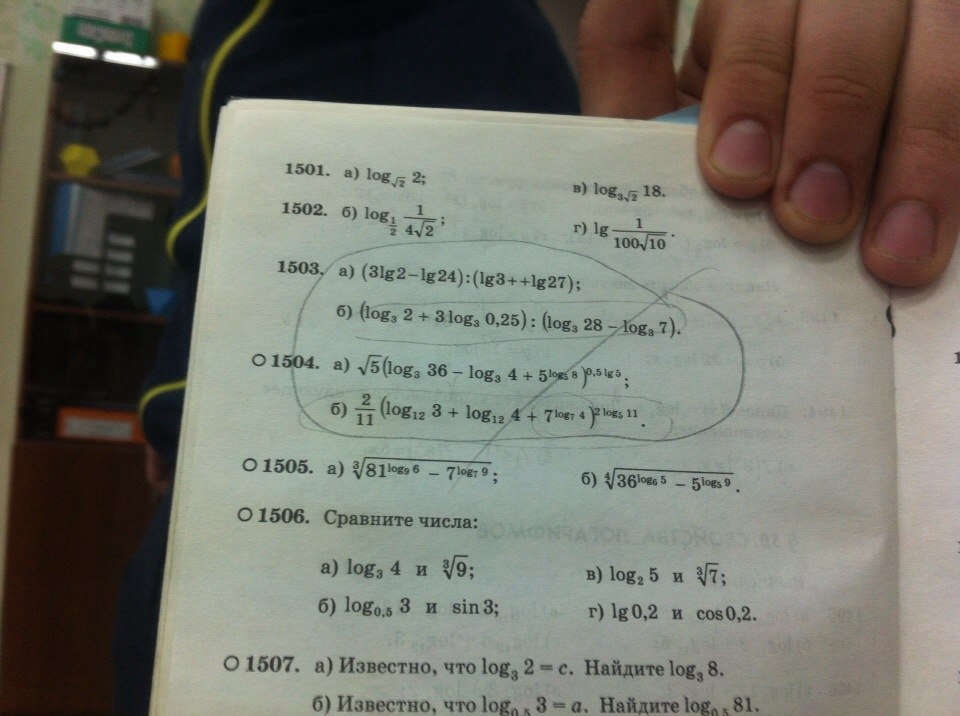 1501. а) log_{√2} 2; в) log_{3√2} 18.
1502. б) log_{1/2} 1/(4√2); г) lg 1/(100√10).
1503. а) (3lg2−lg24):(lg3++lg27);
б) (log₃ 2 + 3 log₃ 0,25) : (log₃ 28 − log₃ 7).
○ 1504. а) √5(log₃ 36 − log₃ 4 + 5^{log₅ 8})^{0,5 lg 5};
б) 2/11 (log₁₂ 3 + log₁₂ 4 + 7^{log₇ 4})^{2 log₅ 11}.
○ 1505. а) ∛(81^{log₉ 6} − 7^{log₇ 9}); б) ∜(36^{log₆ 5} − 5^{log₅ 9}).
○ 1506. Сравните числа:
а) log₃ 4 и ∛9; в) log₂ 5 и ∛7;
б) log_{0,5} 3 и sin 3; г) lg 0,2 и cos 0,2.
○ 1507. а) Известно, что log₃ 2 = c. Найдите log₃ 8.
б) Известно, что log_{0,5} 3 = a. Найдите log_{0,5} 81.